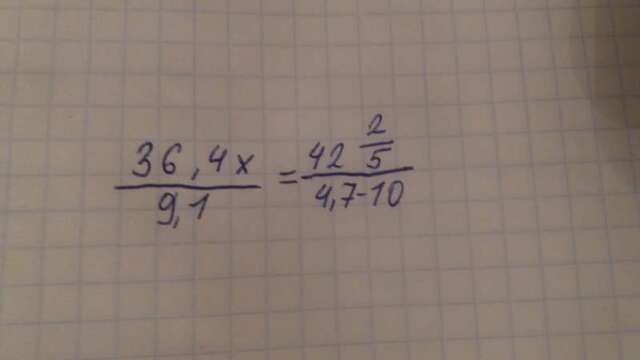 36,4x / 9,1 = 42 2/5 / 4,7-10